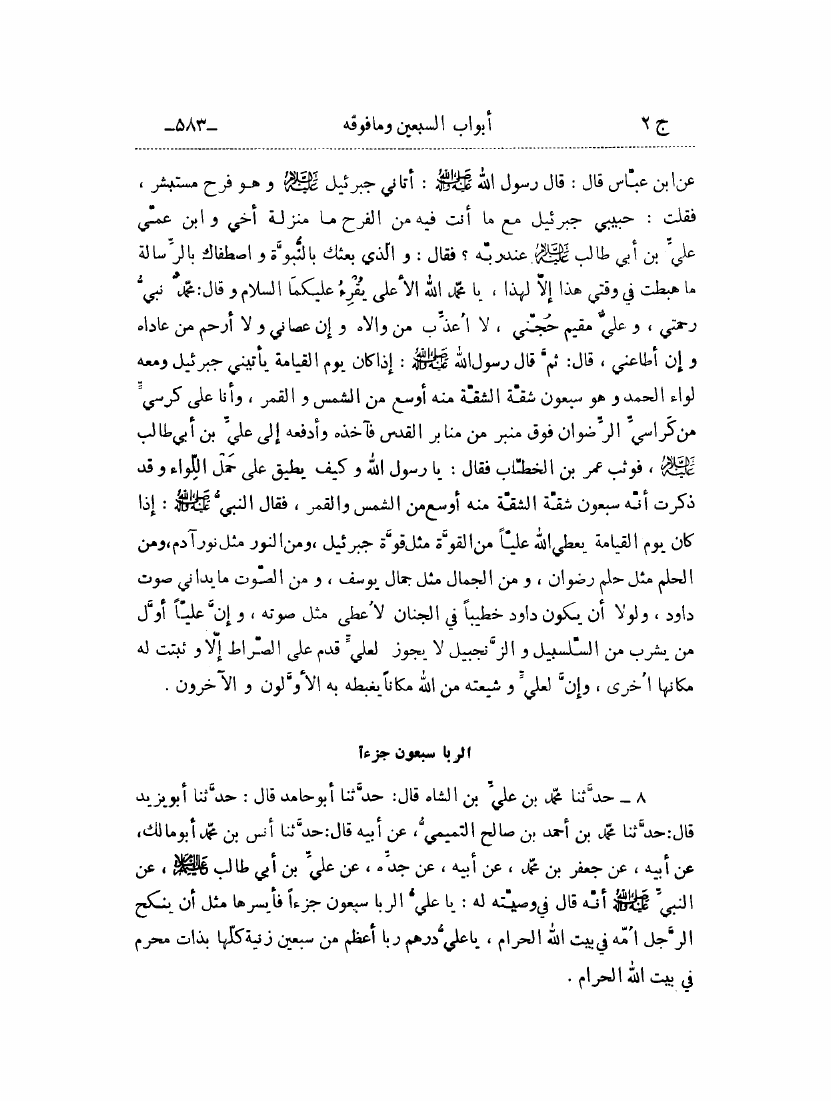 ج ٢ أبواب السبعين ومافوقه ـ٥٨٣ـ
عن ابن عبّاس قال : قال رسول الله ﷺ : أتاني جبرئيل عليه السلام و هـو فرح مستبشر ،
فقلت : حبيبي جبرئيل مـع ما أنت فيه من الفرح مـا منزلـة أخي و ابن عمّـي
عليِّ بن أبي طالب عليه السلام عند ربّـه ؟ فقال : و الّذي بعثك بالنُّبوَّة و اصطفاك بالرِّسالة
ما هبطت في وقتي هذا إلّا لهذا ، يا محمّد الله الأعلى يُقْرِءُ عليكمَا السلام و قال: محمّدٌ نبيُّ
رحمتي ، و عليٌّ مقيم حُجّتي ، لا اُعذِّب من والاه و إن عصاني و لا أرحم من عاداه
و إن أطاعني ، قال: ثمَّ قال رسول الله ﷺ : إذا كان يوم القيامة يأتيني جبرئيل ومعه
لواء الحمد و هو سبعون شقّـة الشقّـة منه أوسع من الشمس و القمر ، وأنا على كرسيٍّ
من كَراسيِّ الرِّضوان فوق منبر من منابر القدس فآخذه وأدفعه إلى عليِّ بن أبي طالب
عليه السلام ، فوثب عمر بن الخطّاب فقال : يا رسول الله و كيف يطيق على حَمْل اللِّواء و قد
ذكرت أنّـه سبعون شقّـة الشقّـة منه أوسع من الشمس والقمر ، فقال النبيُّ ﷺ : إذا
كان يوم القيامة يعطي الله عليّـاً من القوَّة مثل قوَّة جبرئيل ،ومن النور مثل نور آدم،ومن
الحلم مثل حلم رضوان ، و من الجمال مثل جمال يوسف ، و من الصّوت ما يداني صوت
داود ، ولولا أن يـكون داود خطيباً في الجنان لاُعطي مثل صوته ، و إنَّ عليّـاً أوَّل
من يشرب من السّلسبيل و الزَّنجبيل لا يجوز لعليٍّ قدم على الصّراط إلّا و ثبتت له
مكانها اُخرى ، وإنَّ لعليٍّ و شيعته من الله مكاناً يغبطه به الأوَّلون و الآخرون .
الربا سبعون جزءاً
٨ ـ حدَّثنا محمّد بن عليِّ بن الشاه قال: حدَّثنا أبو حامد قال : حدَّثنا أبو يزيد
قال:حدَّثنا محمّد بن أحمد بن صالح التميميُّ، عن أبيه قال:حدَّثنا أنس بن محمّد أبو مالك،
عن أبيه ، عن جعفر بن محمّد ، عن أبيه ، عن جدِّه ، عن عليِّ بن أبي طالب عليهم السلام ، عن
النبيِّ ﷺ أنّـه قال في وصيّته له : يا عليُّ الربا سبعون جزءاً فأيسرها مثل أن ينـكح
الرَّجل اُمّه في بيت الله الحرام ، يا عليُّ درهم ربا أعظم من سبعين زنية كلّها بذات محرم
في بيت الله الحرام .